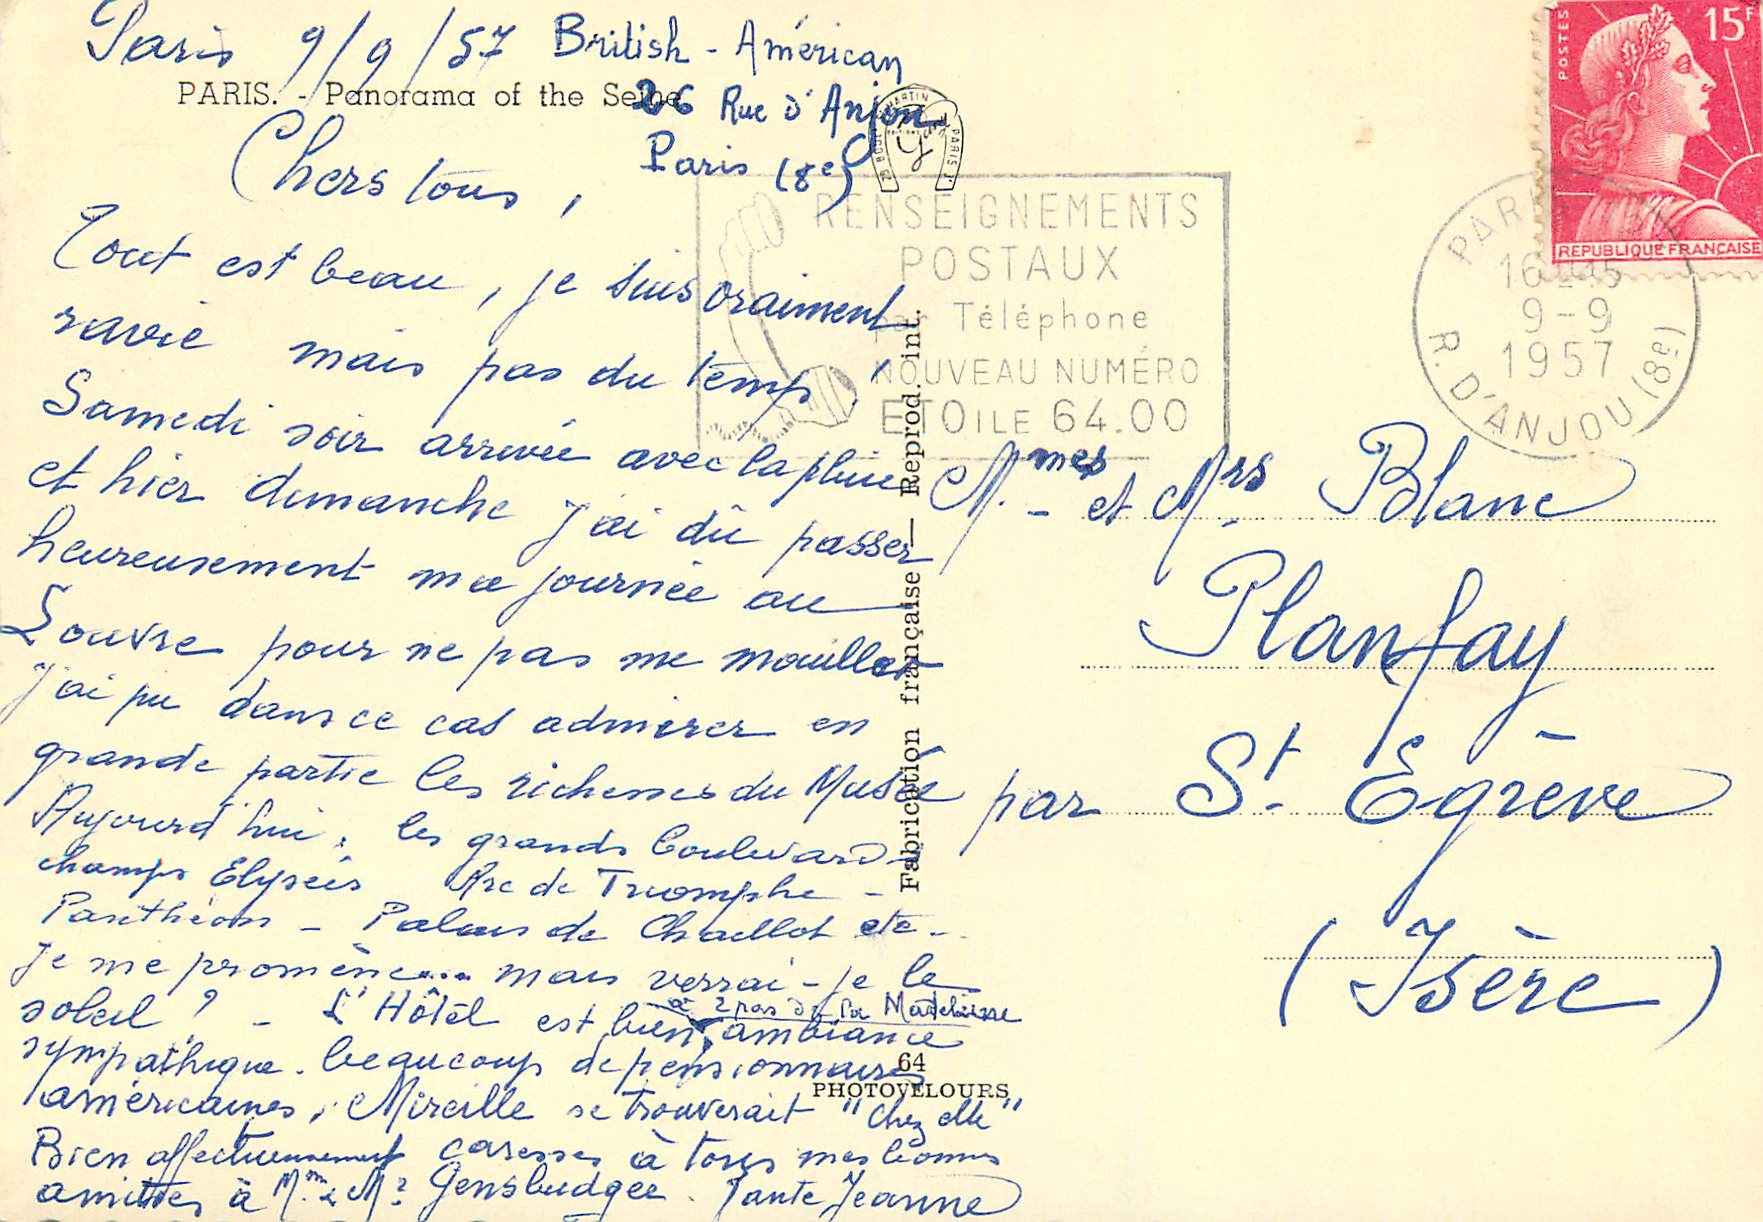 Paris 9/9/57 British-Américan
26 Rue d'Anjou
Paris (8e)
PARIS. - Panorama of the Seine
Chers tous,
Tout est beau, je suis vraiment
ravie mais pas du temps.
Samedi soir arrivée avec la pluie
et hier dimanche j'ai dû passer
heureusement ma journée au
Louvre pour ne pas me mouiller
j'ai pu dans ce cas admirer en
grande partie les richesses du Musée
Aujourd'hui, les grands boulevards
champs Elysées Arc de Triomphe -
Panthéon - Palais de Chaillot etc..
Je me promène... mais verrai-je le
soleil ? - L'Hôtel est bien,
à 2 pas de la Madeleine
ambiance
sympathique. beaucoup de pensionnaires
américaines, Mireille se trouverait "chez elle"
Bien affectueusement caresses à tous mes
amitiés à Mme & Mr Tante Jeanne
BOUL. MARTIN
PARIS
Yvon
Fabrication française — Reprod. int.
64
PHOTOVELOURS
RENSEIGNEMENTS
POSTAUX
par Téléphone
NOUVEAU NUMÉRO
ETOILE 64.00
PARIS
9-9
1957
R. D'ANJOU (8e)
POSTES
15F
REPUBLIQUE FRANÇAISE
M.mes et Mrs. Blanc
Planfay
par St. Egrève
(Isère)